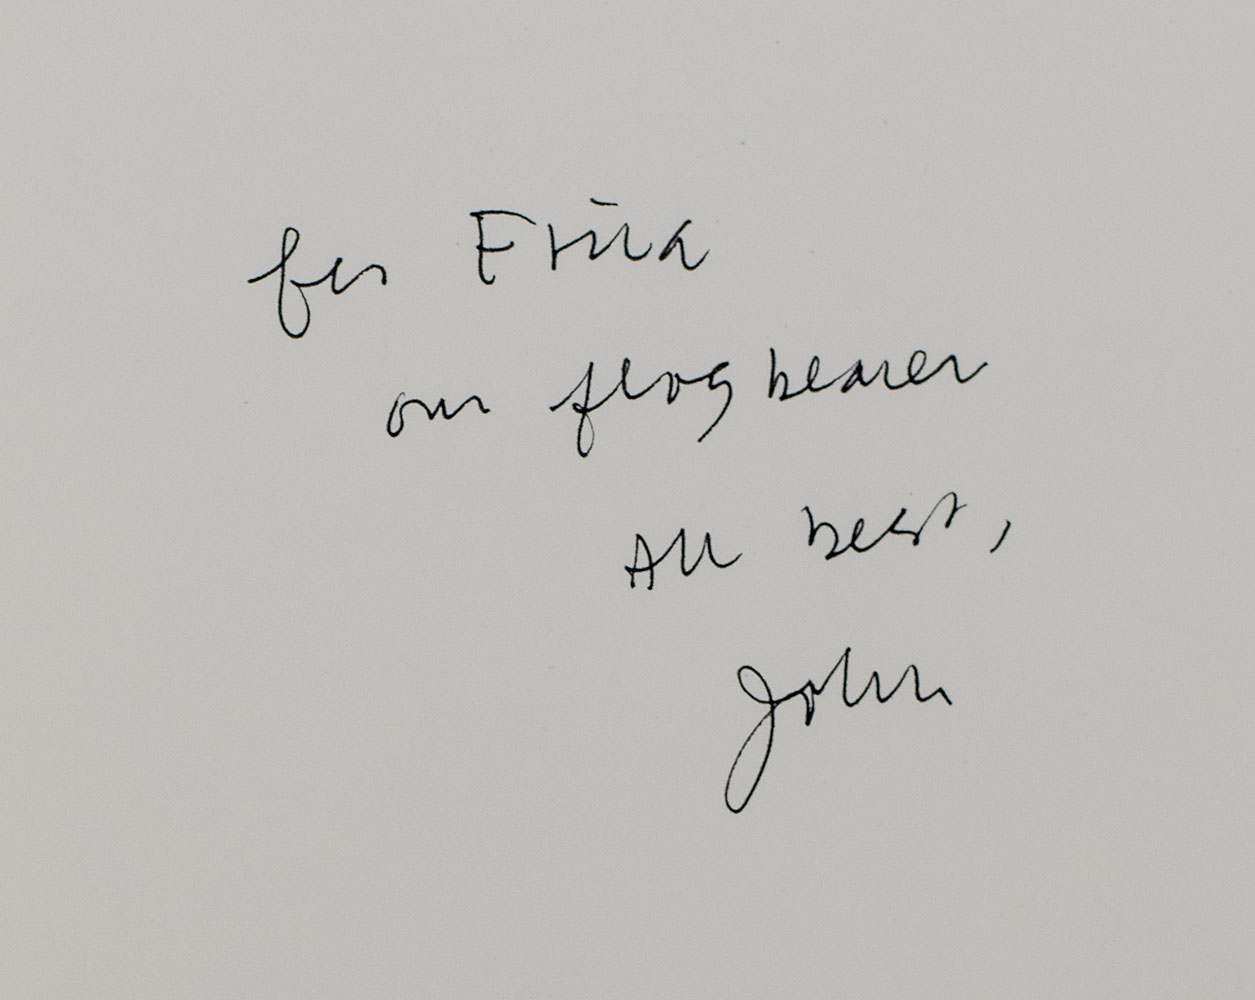 for Erica
our flag bearer
All best,
John